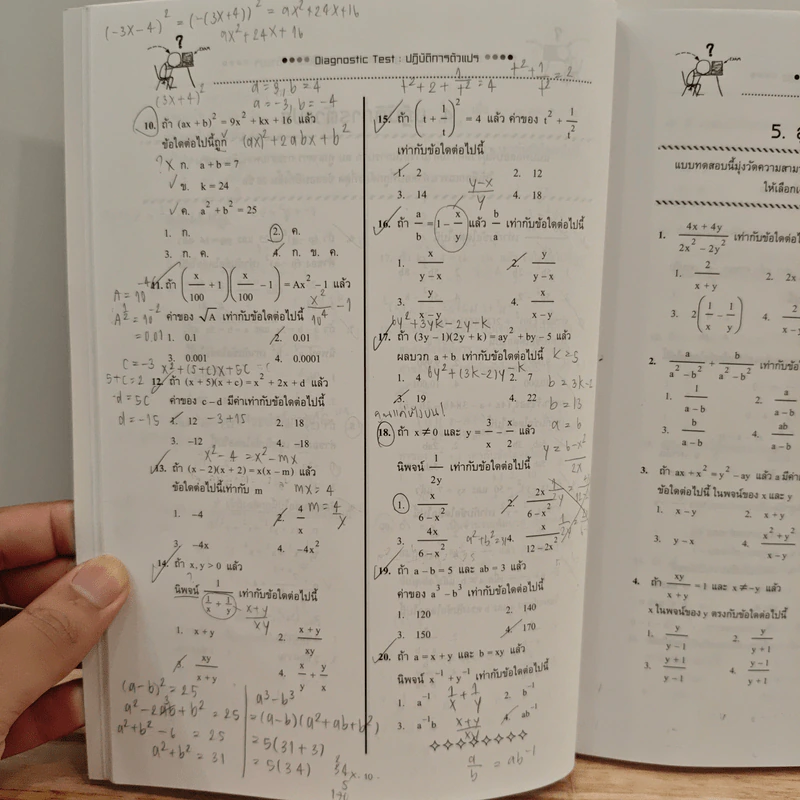 (-3x-4)² = (-(3x+4))² = 9x²+24x+16
9x²+24x+16
Diagnostic Test : ปฏิบัติการตัวแปร
(3x+4)²
a = 3, b = 4
a = -3, b = -4
10. ถ้า (ax + b)² = 9x² + kx + 16 แล้ว
ข้อใดต่อไปนี้ถูก
(ax)²+2abx+b²
? x ก. a + b = 7
✓ ข. k = 24
✓ ค. a² + b² = 25
1. ก.
2. ค.
3. ก. ค.
4. ก. ข. ค.
11. ถ้า (x/100 + 1)(x/100 - 1) = Ax² - 1 แล้ว
x²/10⁴ - 1
A = 10⁻⁴
ค่าของ √A เท่ากับข้อใดต่อไปนี้
A^½ = 10⁻²
= 0.01
1. 0.1
2. 0.01
3. 0.001
4. 0.0001
c = -3
x²+(5+c)x+5c
5+c = 2
12. ถ้า (x + 5)(x + c) = x² + 2x + d แล้ว
d = 5c
ค่าของ c - d มีค่าเท่ากับข้อใดต่อไปนี้
d = -15
1. 12
-3+15
2. 18
3. -12
4. -18
x²-4 = x²-mx
13. ถ้า (x - 2)(x + 2) = x(x - m) แล้ว
ข้อใดต่อไปนี้เท่ากับ m
mx = 4
m = 4/x
1. -4
2. 4/x
3. -4x
4. -4x²
14. ถ้า x, y > 0 แล้ว
นิพจน์ 1/(1/x + 1/y) เท่ากับข้อใดต่อไปนี้
x+y/xy
1. x + y
2. x + y/xy
3. xy/x + y
4. x/y + y/x
(a-b)² = 25
a²-2ab+b² = 25
a²+b²-6 = 25
a²+b² = 31
a³-b³
=(a-b)(a²+ab+b²)
= 5(31+3)
= 5(34)
t²+2+1/t² = 4
t²+1/t² = 2
15. ถ้า (t + 1/t)² = 4 แล้ว ค่าของ t² + 1/t²
เท่ากับข้อใดต่อไปนี้
1. 2
2. 12
3. 14
4. 18
y-x/y
16. ถ้า a/b = 1 - x/y แล้ว b/a เท่ากับข้อใดต่อไปนี้
1. x/y - x
2. y/y - x
3. y/x - y
4. x/x - y
6y²+3yk-2y-k
17. ถ้า (3y - 1)(2y + k) = ay² + by - 5 แล้ว
ผลบวก a + b เท่ากับข้อใดต่อไปนี้
k = 5
6y²+(3k-2)y-k
1. 4
2. 7
b = 3k-2
3. 19
4. 22
b = 13
a = 6
18. ถ้า x ≠ 0 และ y = 3/x - x/2 แล้ว
y = 6-x²/2x
นิพจน์ 1/2y เท่ากับข้อใดต่อไปนี้
1. x/6 - x²
2. 2x/6 - x²
3. 4x/6 - x²
4. x/12 - 2x²
19. ถ้า a - b = 5 และ ab = 3 แล้ว
ค่าของ a³ - b³ เท่ากับข้อใดต่อไปนี้
1. 120
2. 140
3. 150
4. 170
20. ถ้า a = x + y และ b = xy แล้ว
นิพจน์ x⁻¹ + y⁻¹ เท่ากับข้อใดต่อไปนี้
1. a⁻¹
1/x + 1/y
2. b⁻¹
3. a⁻¹b
x+y/xy
4. ab⁻¹
a/b = ab⁻¹
5.
แบบทดสอบนี้มุ่งวัดความสามา
ให้เลือก
1. 4x + 4y/2x² - 2y² เท่ากับข้อใดต่อ
1. 2/x + y
2. 2x
3. 2(1/x - 1/y)
4.
2. a/a² - b² + b/a² - b² เท่ากับข้อ
1. 1/a - b
2. a/a - b
3. b/a - b
4. ab/a - b
3. ถ้า ax + x² = y² - ay แล้ว a มีค่า
ข้อใดต่อไปนี้ ในพจน์ของ x และ y
1. x - y
2. x + y
3. y - x
4. x² + y²/x - y
4. ถ้า xy/x + y = 1 และ x ≠ -y แล้ว
x ในพจน์ของ y ตรงกับข้อใดต่อไปนี้
1. y/y - 1
2. y/y + 1
3. y + 1/y - 1
4. y - 1/y + 1